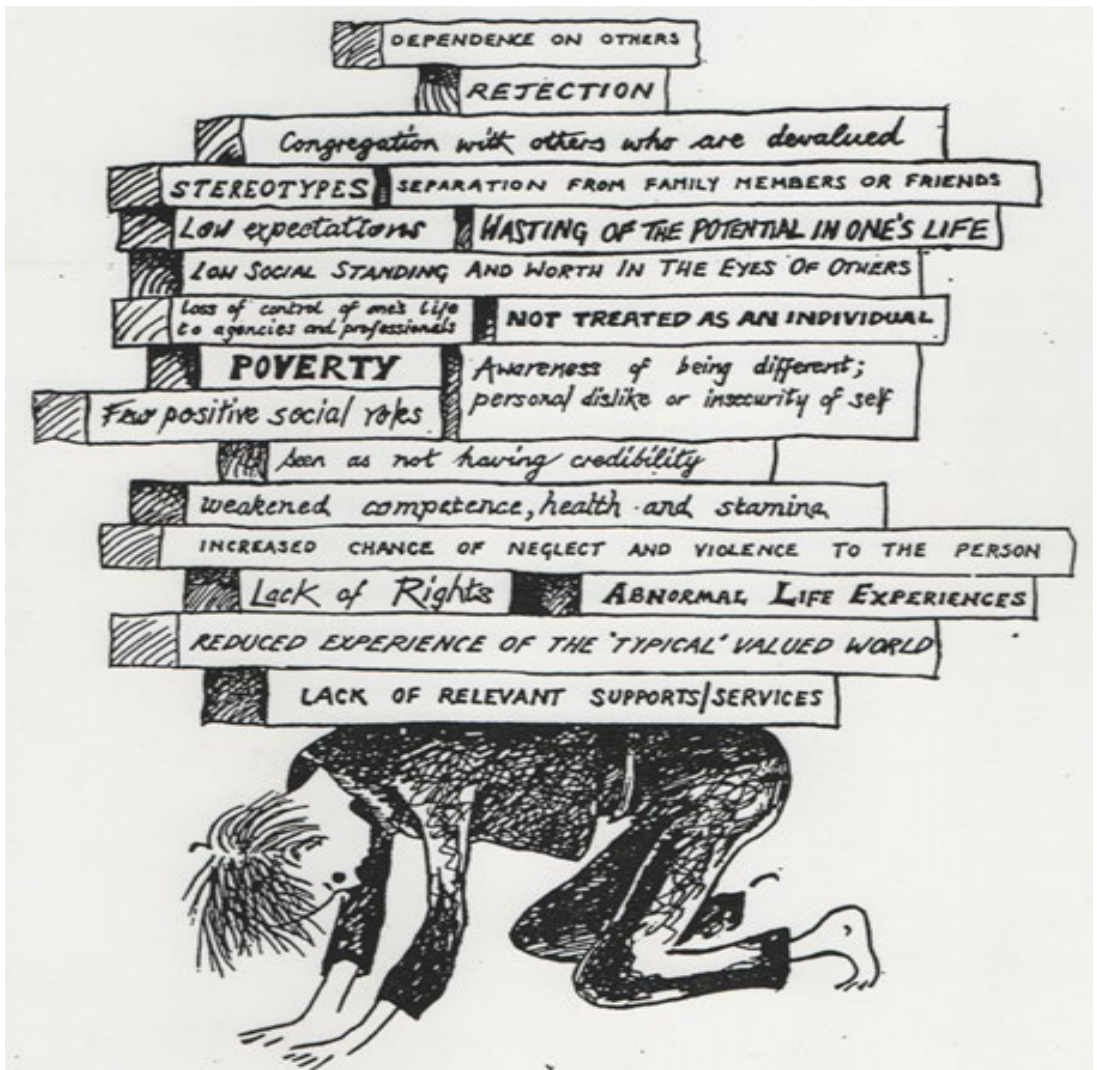 DEPENDENCE ON OTHERS
REJECTION
Congregation with others who are devalued
STEREOTYPES
SEPARATION FROM FAMILY MEMBERS OR FRIENDS
Low expectations
WASTING OF THE POTENTIAL IN ONE'S LIFE
LOW SOCIAL STANDING AND WORTH IN THE EYES OF OTHERS
Loss of control of one's life
to agencies and professionals
NOT TREATED AS AN INDIVIDUAL
POVERTY
Awareness of being different;
personal dislike or insecurity of self
Few positive social roles
seen as not having credibility
weakened competence, health and stamina
INCREASED CHANCE OF NEGLECT AND VIOLENCE TO THE PERSON
Lack of Rights
ABNORMAL LIFE EXPERIENCES
REDUCED EXPERIENCE OF THE 'TYPICAL' VALUED WORLD
LACK OF RELEVANT SUPPORTS/SERVICES